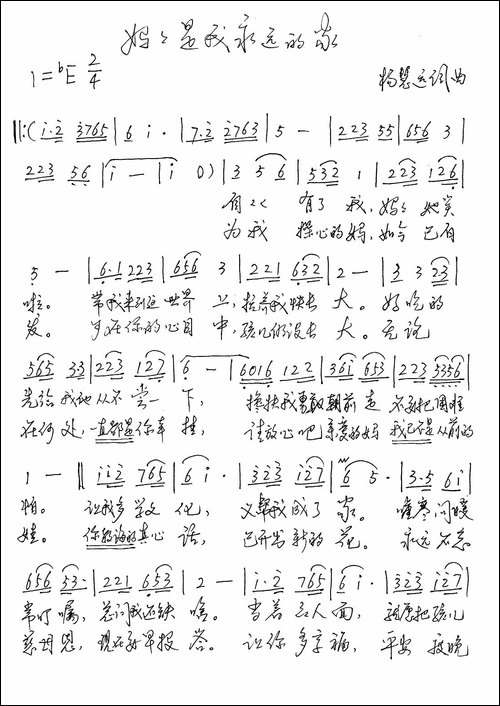 妈妈是我永远的家
1=ᵇE 2/4
杨慧远词曲
‖:(i·2 3765|6 i·|7·2 2763|5 —|223 55|656 3|
223 56|i —|i 0)|3 5 6|532 1|223 126|
有了 有了 我,妈妈 她笑
为我 操心的妈,如今 已有
5 —|6·1 223|656 3|221 632|2 —|3 3 23|
啦。 带我来到这 世界 上,抚养我快长 大。 好吃的
发。 在你的心目 中,孩儿仍没长 大。 无论
565 33|223 127|6 —|6016 122|36i 653|223 3356|
先给 我她从不 尝一 下, 搀扶我勇敢朝前 走 不要把困难
在何 处,一直都是你牵 挂, 请放心吧亲爱的妈 我已不是从前的
1 —‖ii2 765|6 i·|323 i27|6 5·|3·5 6i|
怕。 让我多学文 化, 又帮我成了 家。 嘘寒问暖
娃。 你教诲的真心 话, 已开出新的 花。 永远不忘
656 53·|221 653|2 —|i·2 765|6 i·|323 i27|
常叮 嘱, 总问我还缺 啥。 当着 众人 面, 把孩儿
养育 恩, 现在就早报 答。 让你 多享 福, 平安 到晚